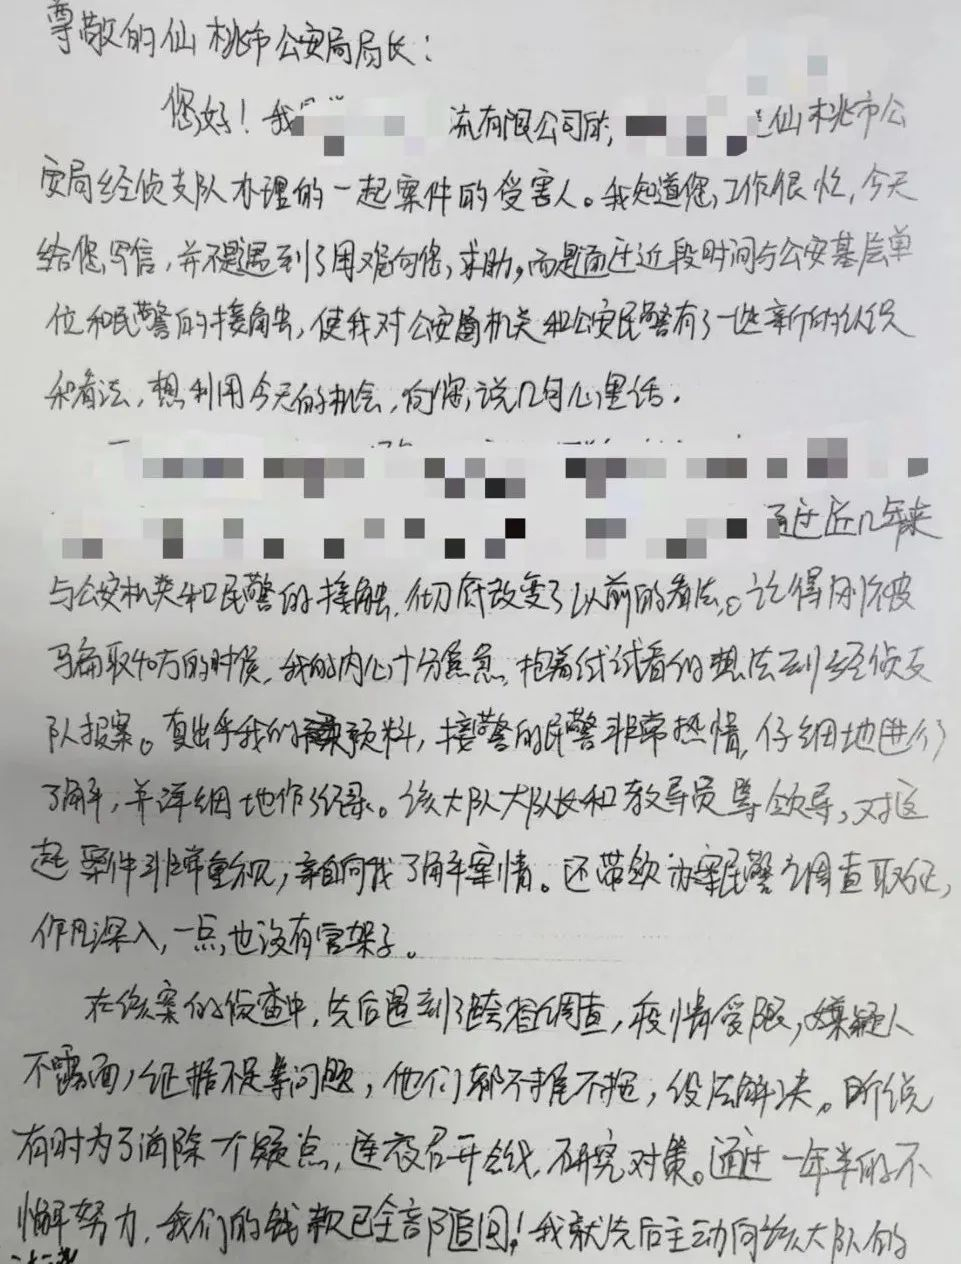 尊敬的仙桃市公安局局长：
您好！我 流有限公司的, 仙桃市公
安局经侦支队办理的一起案件的受害人。我知道您,工作很忙,今天
给您,写信,并不是遇到了困难向您,求助,而是通过近段时间与公安基层单
位和民警的接触,使我对公安机关和公安民警有了一些新的认识
和看法,想利用今天的机会,向您,说几句心里话。
通过近几年来
与公安机关和民警的接触,彻底改变了以前的看法。记得刚被
骗取40万的时候,我的内心十分焦急,抱着试试看的想法到经侦支
队报案。真出乎我的预料,接警的民警非常热情,仔细地进行
了解,并详细地作了记录。该大队大队长和教导员等领导,对这
起案件非常重视,亲自向我了解案情。还带领办案民警调查取证,
作风深入,一点也没有官架子。
在该案的侦查中,先后遇到了跨省调查,疫情受限,嫌疑人
不露面,证据不足等问题,他们都不推不拖,设法解决。听说
有时为了消除一个疑点,连夜召开会议,研究对策。通过一年半的不
懈努力,我们的钱款已全部追回！我就先后主动向该大队的